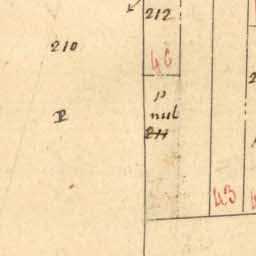 212
210
46
P
nul
P
211
43